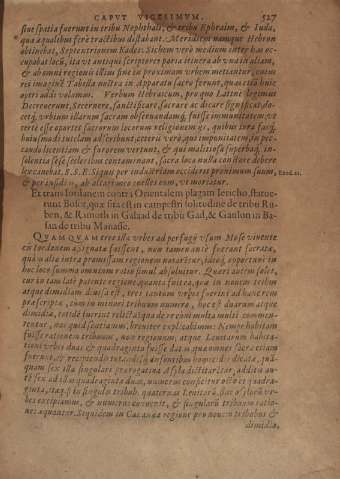 CAPVT VICESIMVM. 527
siue spatia fuerunt in tribu Nephthali, & tribu Ephraim, & Iuda,
quia æqualibus ferè tractibus distabant. Meridiem namque Hebron
obtinebat, Septentrionem Kades. Sichem verò medium inter has oc-
cupabat locū, ita vt antiqui scriptores paria itinera ab vna in aliam,
& ab omni regionis illius fine in proximam vrbem mettantur, cuius
rei imaginē Tabella nostra in Apparatu sacro ferunt, quas esse huic
operi addi volumus. Verbum Hebraicum, pro quo Latinè legimus
Decreuerunt, Secernere, sanctificare, sacrare ac dicare significat, do-
cetq́; vrbium illarum sacram obseruandamq́; fuisse immunitatem, vt
certè esse apartet sacrorum locorum religiones ijs, quibus iura sacq́;
huiusmodi tutelam adscribunt, ceteru verò, qui impunitatem in pec-
candi licentiam & furorem vertunt, & qui malitiosa superbaq́; in-
solentia sese sceleribus contaminant, sacra loca nulla constare debere
lex iubebat. S. S. E. Si quis per industriam occiderit proximum suum, Exod. 21.
& per insidias, ab altari meo euelles eum, vt moriatur.
Et trans Iordanem contra Orientalem plagam Iericho, statue-
runt Bosor, quæ sita est in campestri solitudine de tribu Ru-
ben, & Ramoth in Galaad de tribu Gad, & Gaulon in Ba-
san de tribu Manasse.
QVAMQVAM tres illæ vrbes ad perfugium vsum Mose viuente
citra Iordanem assignatæ fuissent, non tamen antè fuerant sacratæ,
quàm alia intra promissam regionem notarētur, ideoq́; oportuni in
hoc loco summa omnium ratio simul absoluitur. Quæri autem solet,
cur in tam latè patente regione, quanta fuit ea, quæ in nouem tribus
atque dimidiam diuisa est, tres tantùm vrbes fuerint ad hanc rem
præscriptæ, cum in minori tribuum numero, hoc est duarum atque
dimidiæ, totidē fuerint relictæ: atqui de re cùm multa multi commen-
tentur, nos quid sentiamus, breuiter explicabimus. Nempe habitam
fuisse rationem tribuum, non regionum, atque Leuitarum habita-
tioni vrbes duas & quadraginta fuisse datas, quæ omnes sacræ etiam
fuerunt, & recipiendo tutandisq́; insontibus homicidis dicatæ, quā-
quam sex illæ singulari prærogatiua Asyla dicerētur, additis au-
tē sex ad illas quadraginta duas, numerus conficitur octo et quadra-
ginta, itaq́; in singulis tribub. quaternas Leuitarū, siue asylorū vr-
bes excipiamus, & numerus conuenit, & singularū tribuum ratio-
nes æquantur. Siquidem in Cananæa regione pro nouem tribubus &
dimidia,